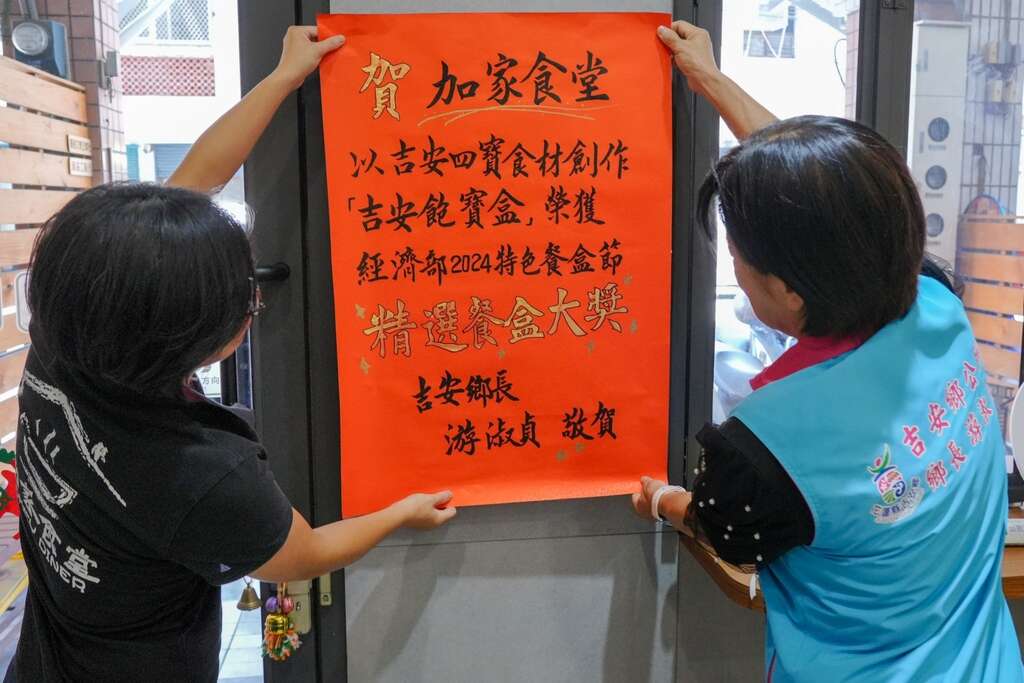 賀 加家食堂
以吉安四寶食材創作
「吉安飽寶盒」榮獲
經濟部2024特色餐盒節
精選餐盒大獎
吉安鄉長
游淑貞 敬賀
食堂
DINER
吉安鄉公
鄉長 游淑
方向